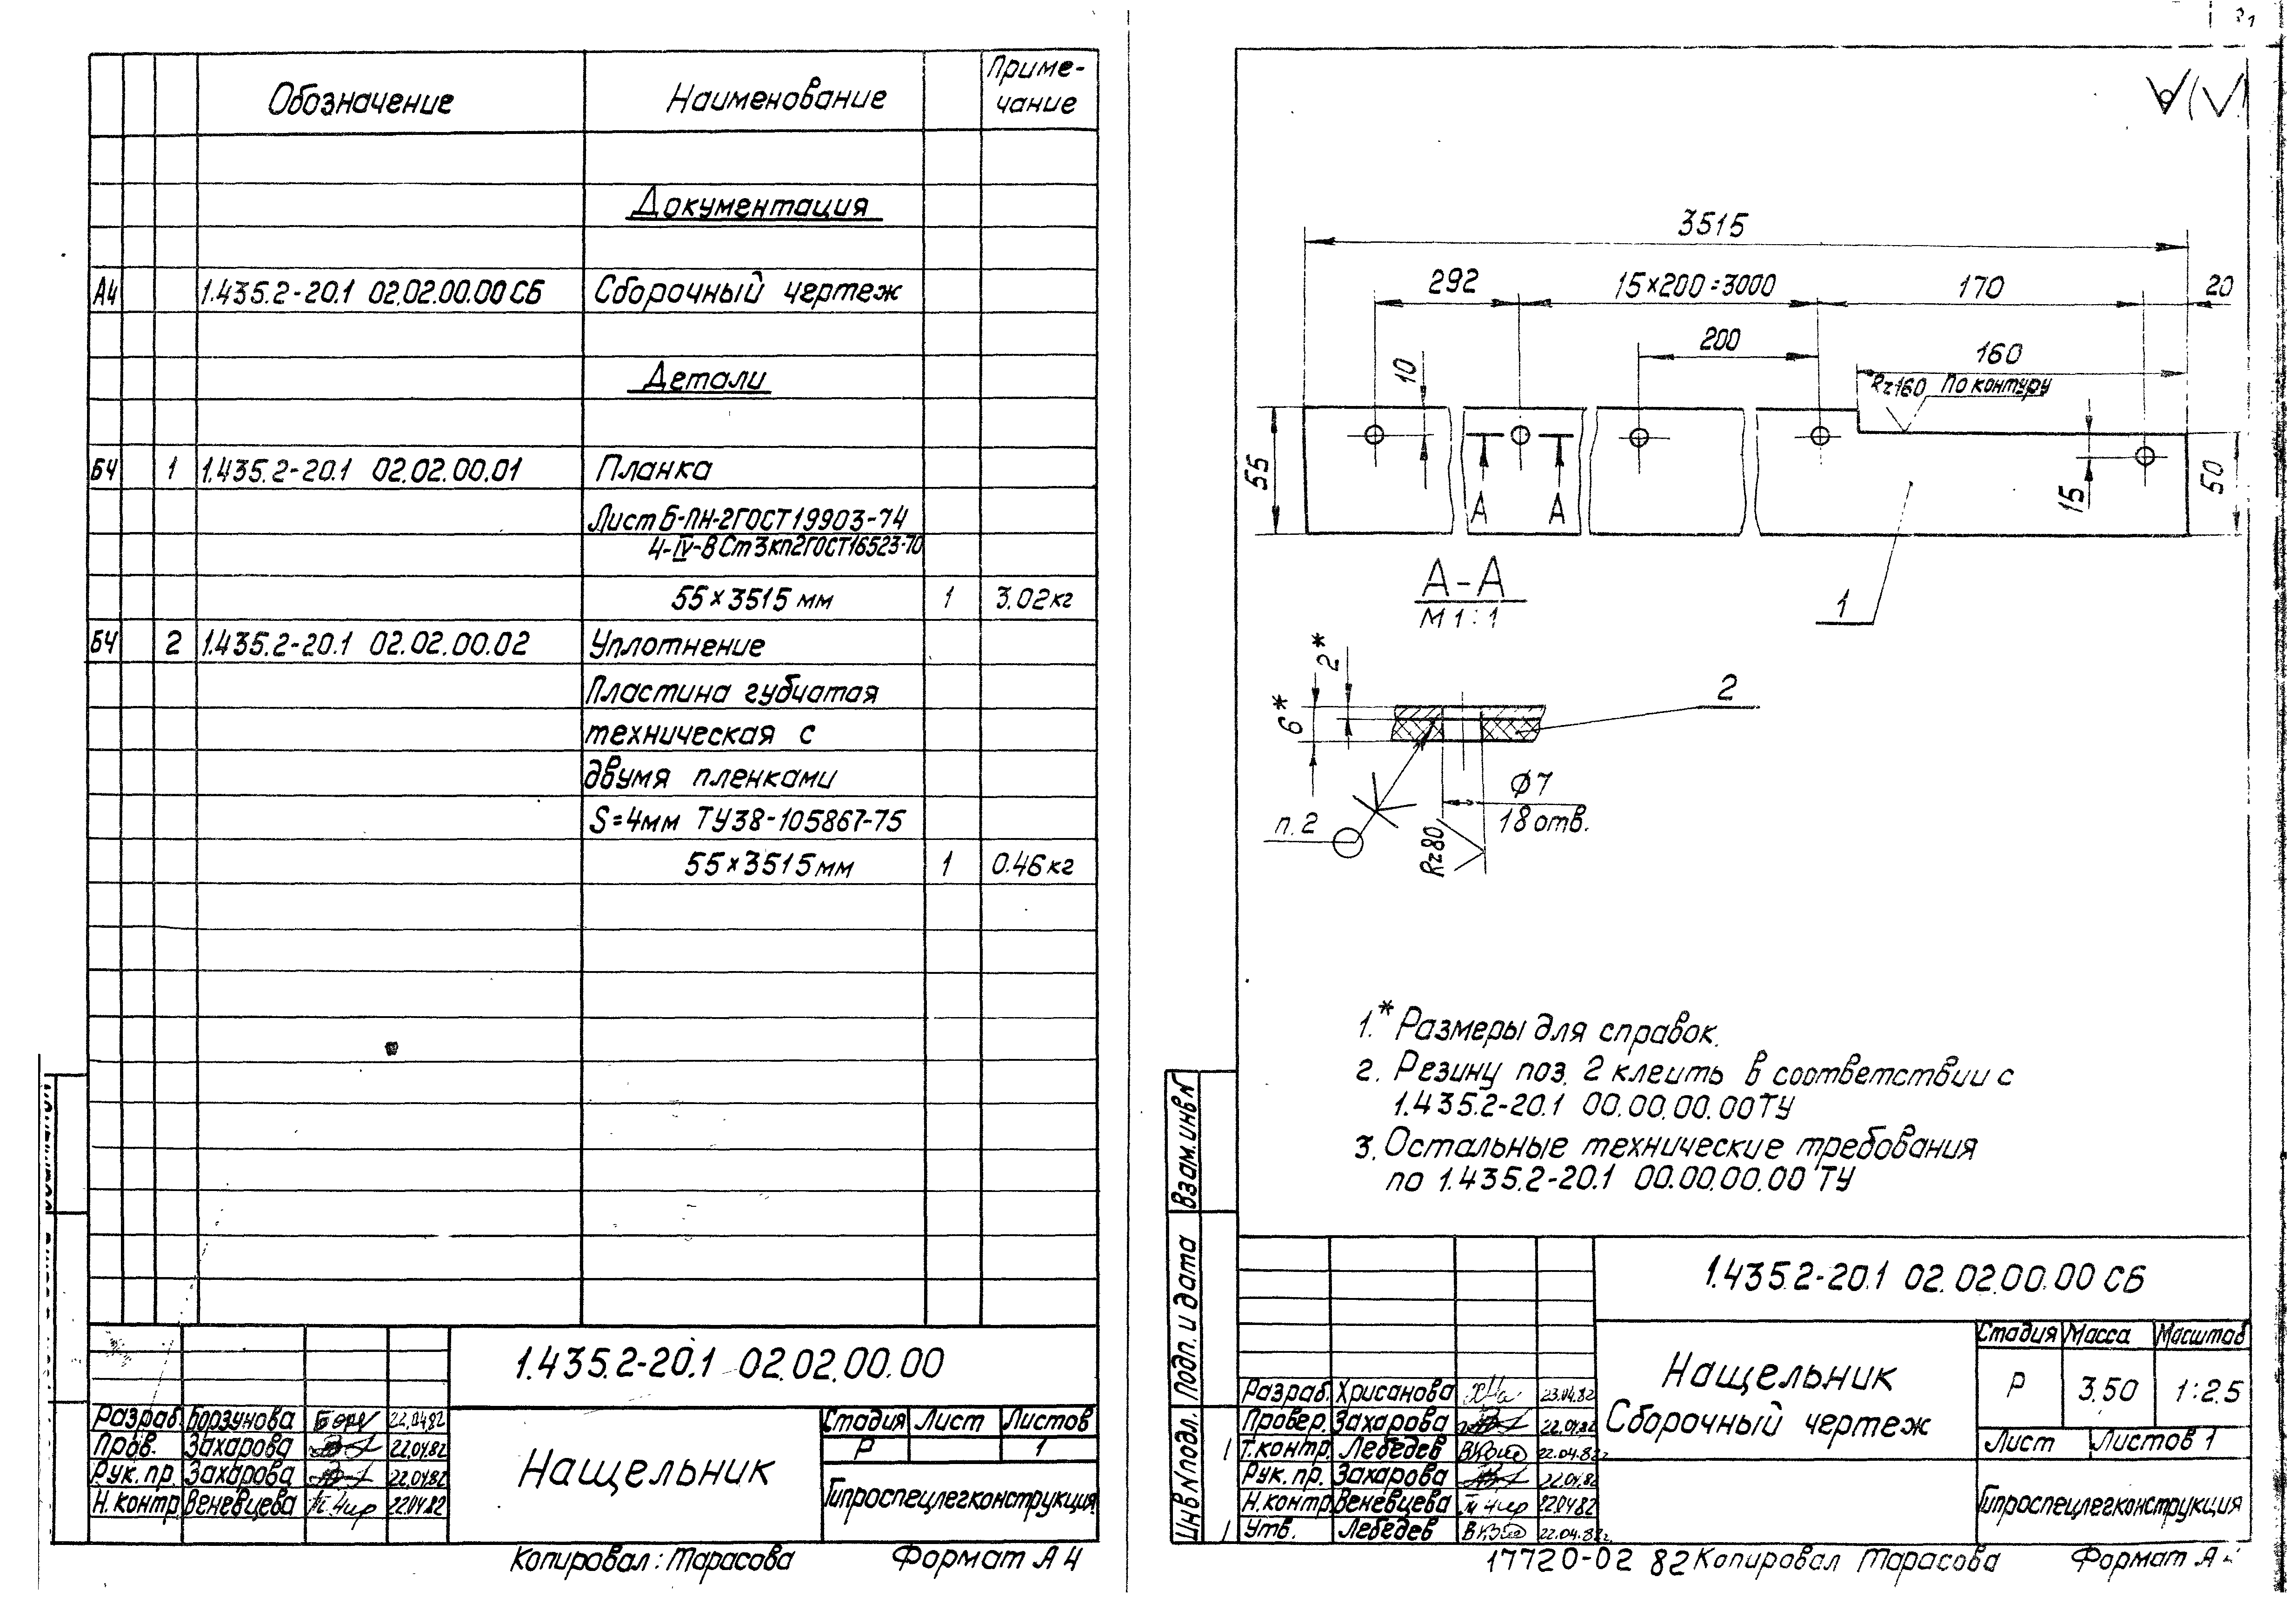 Обозначение
Наименование
Приме-
чание
Документация
А4 1.435.2-20.1 02.02.00.00 СБ Сборочный чертеж
Детали
БЧ 1 1.435.2-20.1 02.02.00.01 Планка
Лист Б-ПН-2 ГОСТ 19903-74
4-IV-В Ст3кп2 ГОСТ 16523-70
55×3515 мм 1 3.02 кг
БЧ 2 1.435.2-20.1 02.02.00.02 Уплотнение
Пластина губчатая
техническая с
двумя пленками
S=4мм ТУ38-105867-75
55×3515мм 1 0.46 кг
1.435.2-20.1 02.02.00.00
Разраб. Борзунова 22.04.82
Пров. Захарова 22.04.82
Рук. пр. Захарова 22.04.82
Н.контр. Веневцева 22.04.82
Нащельник
Стадия Лист Листов
Р 1
Гипроспецлегконструкция
Копировал: Тарасова Формат А4
3515
292 15×200=3000 170 20
200
160
10
Rz160 По контуру
55
А А
15
50
А-А
М 1:1
1
2*
6*
2
ø7
18 отв.
п.2
Rz80
1.* Размеры для справок.
2. Резину поз. 2 клеить в соответствии с
1.435.2-20.1 00.00.00.00ТУ
3. Остальные технические требования
по 1.435.2-20.1 00.00.00.00 ТУ
Взам.инв N
Подп. и дата
Инв N подл.
1.435.2-20.1 02.02.00.00 СБ
Разраб. Хрисанова 23.04.82
Провер. Захарова 22.04.82
Т.контр. Лебедев 22.04.82г.
Рук. пр. Захарова 22.04.82
Н.контр. Веневцева 22.04.82
Утв. Лебедев 22.04.82г.
Нащельник
Сборочный чертеж
Стадия Масса Масштаб
Р 3.50 1:2.5
Лист Листов 1
Гипроспецлегконструкция
17720-02 82 Копировал Тарасова Формат А